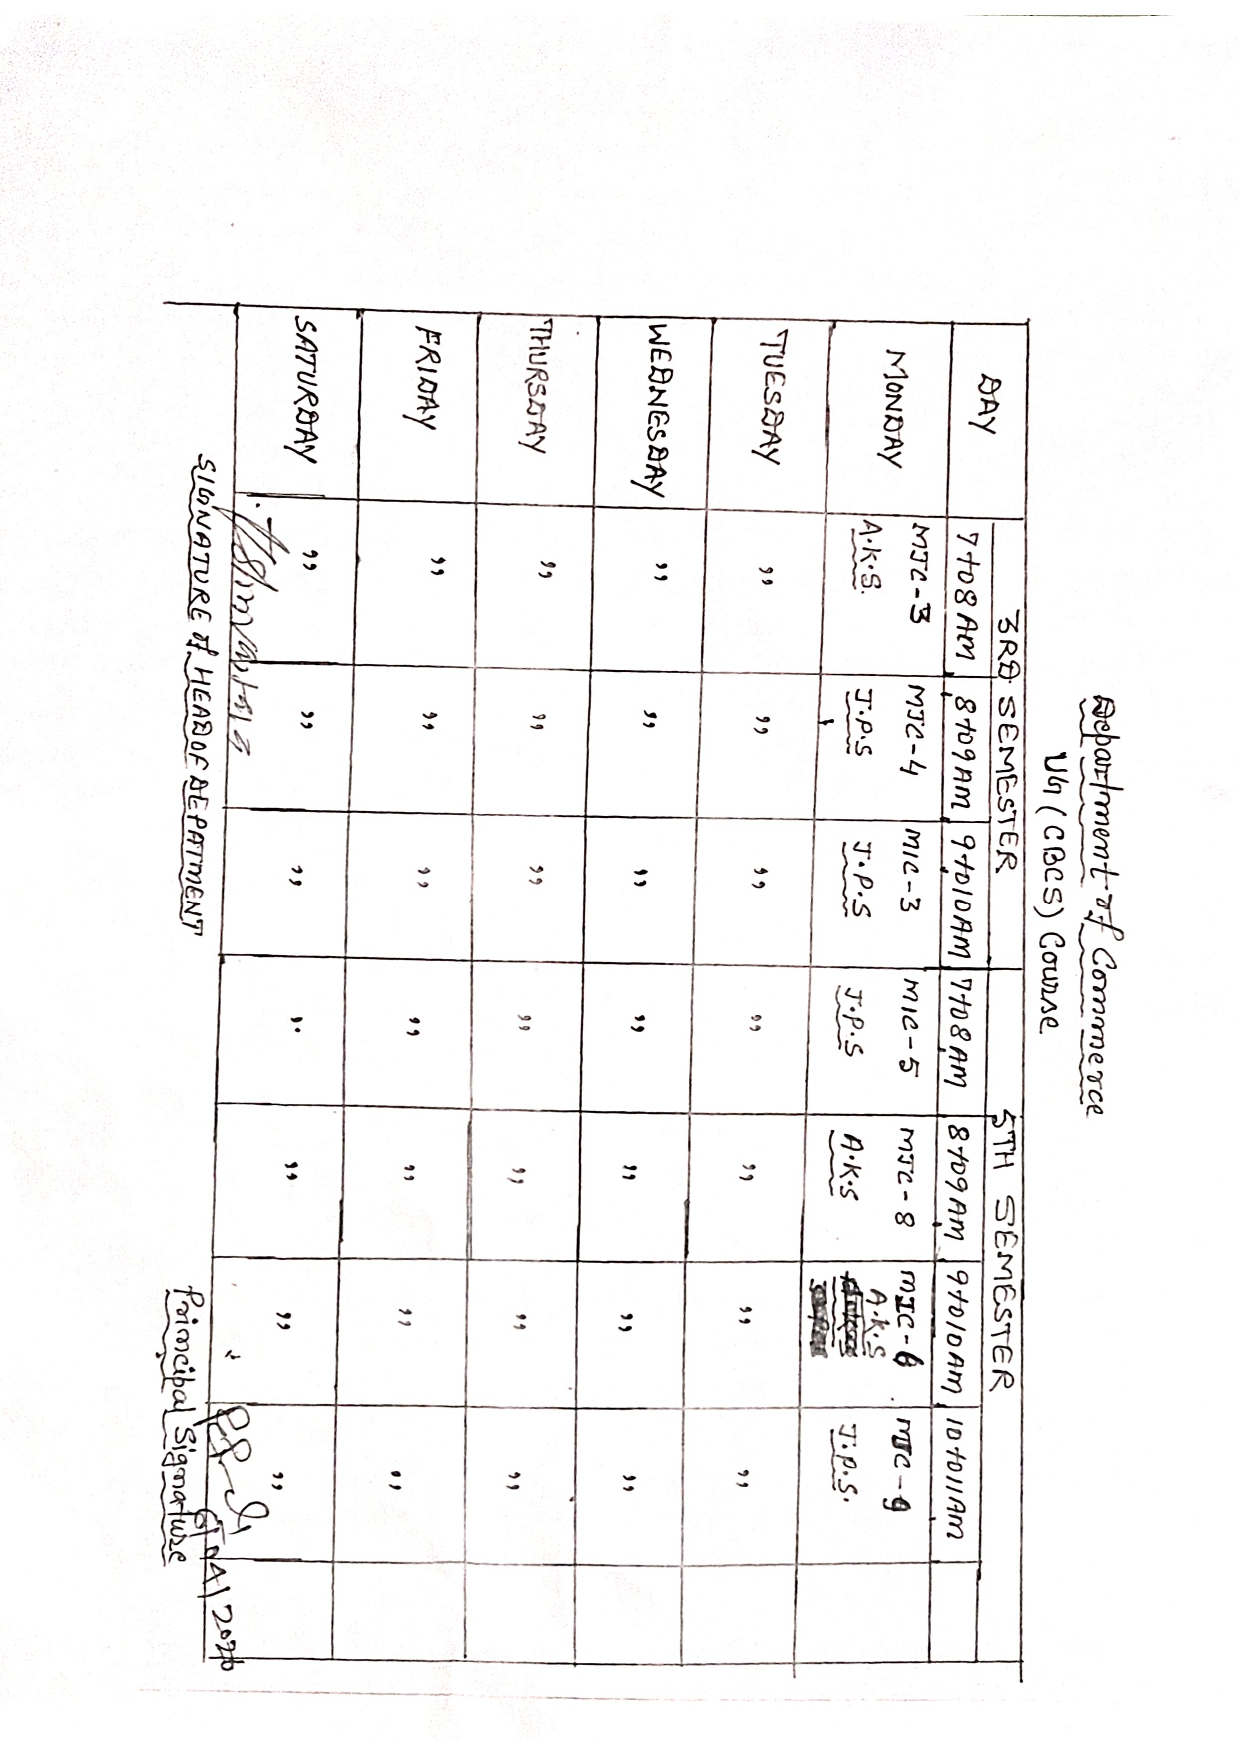 Department of Commerce
UG (CBCS) Course
DAY 3RD SEMESTER 5TH SEMESTER
7 to 8 AM 8 to 9 AM 9 to 10 AM 7 to 8 AM 8 to 9 AM 9 to 10 AM 10 to 11 AM
MONDAY MJC-3 MJC-4 MIC-3 MIC-5 MJC-8 MJC-6 MJC-9
A.K.S. J.P.S J.P.S J.P.S A.K.S A.K.S J.P.S.
TUESDAY " " " " " " "
WEDNESDAY " " " " " " "
THURSDAY " " " " " " "
FRIDAY " " " " " " "
SATURDAY " " " " " " "
SIGNATURE of HEAD OF DEPATMENT
Principal Signature